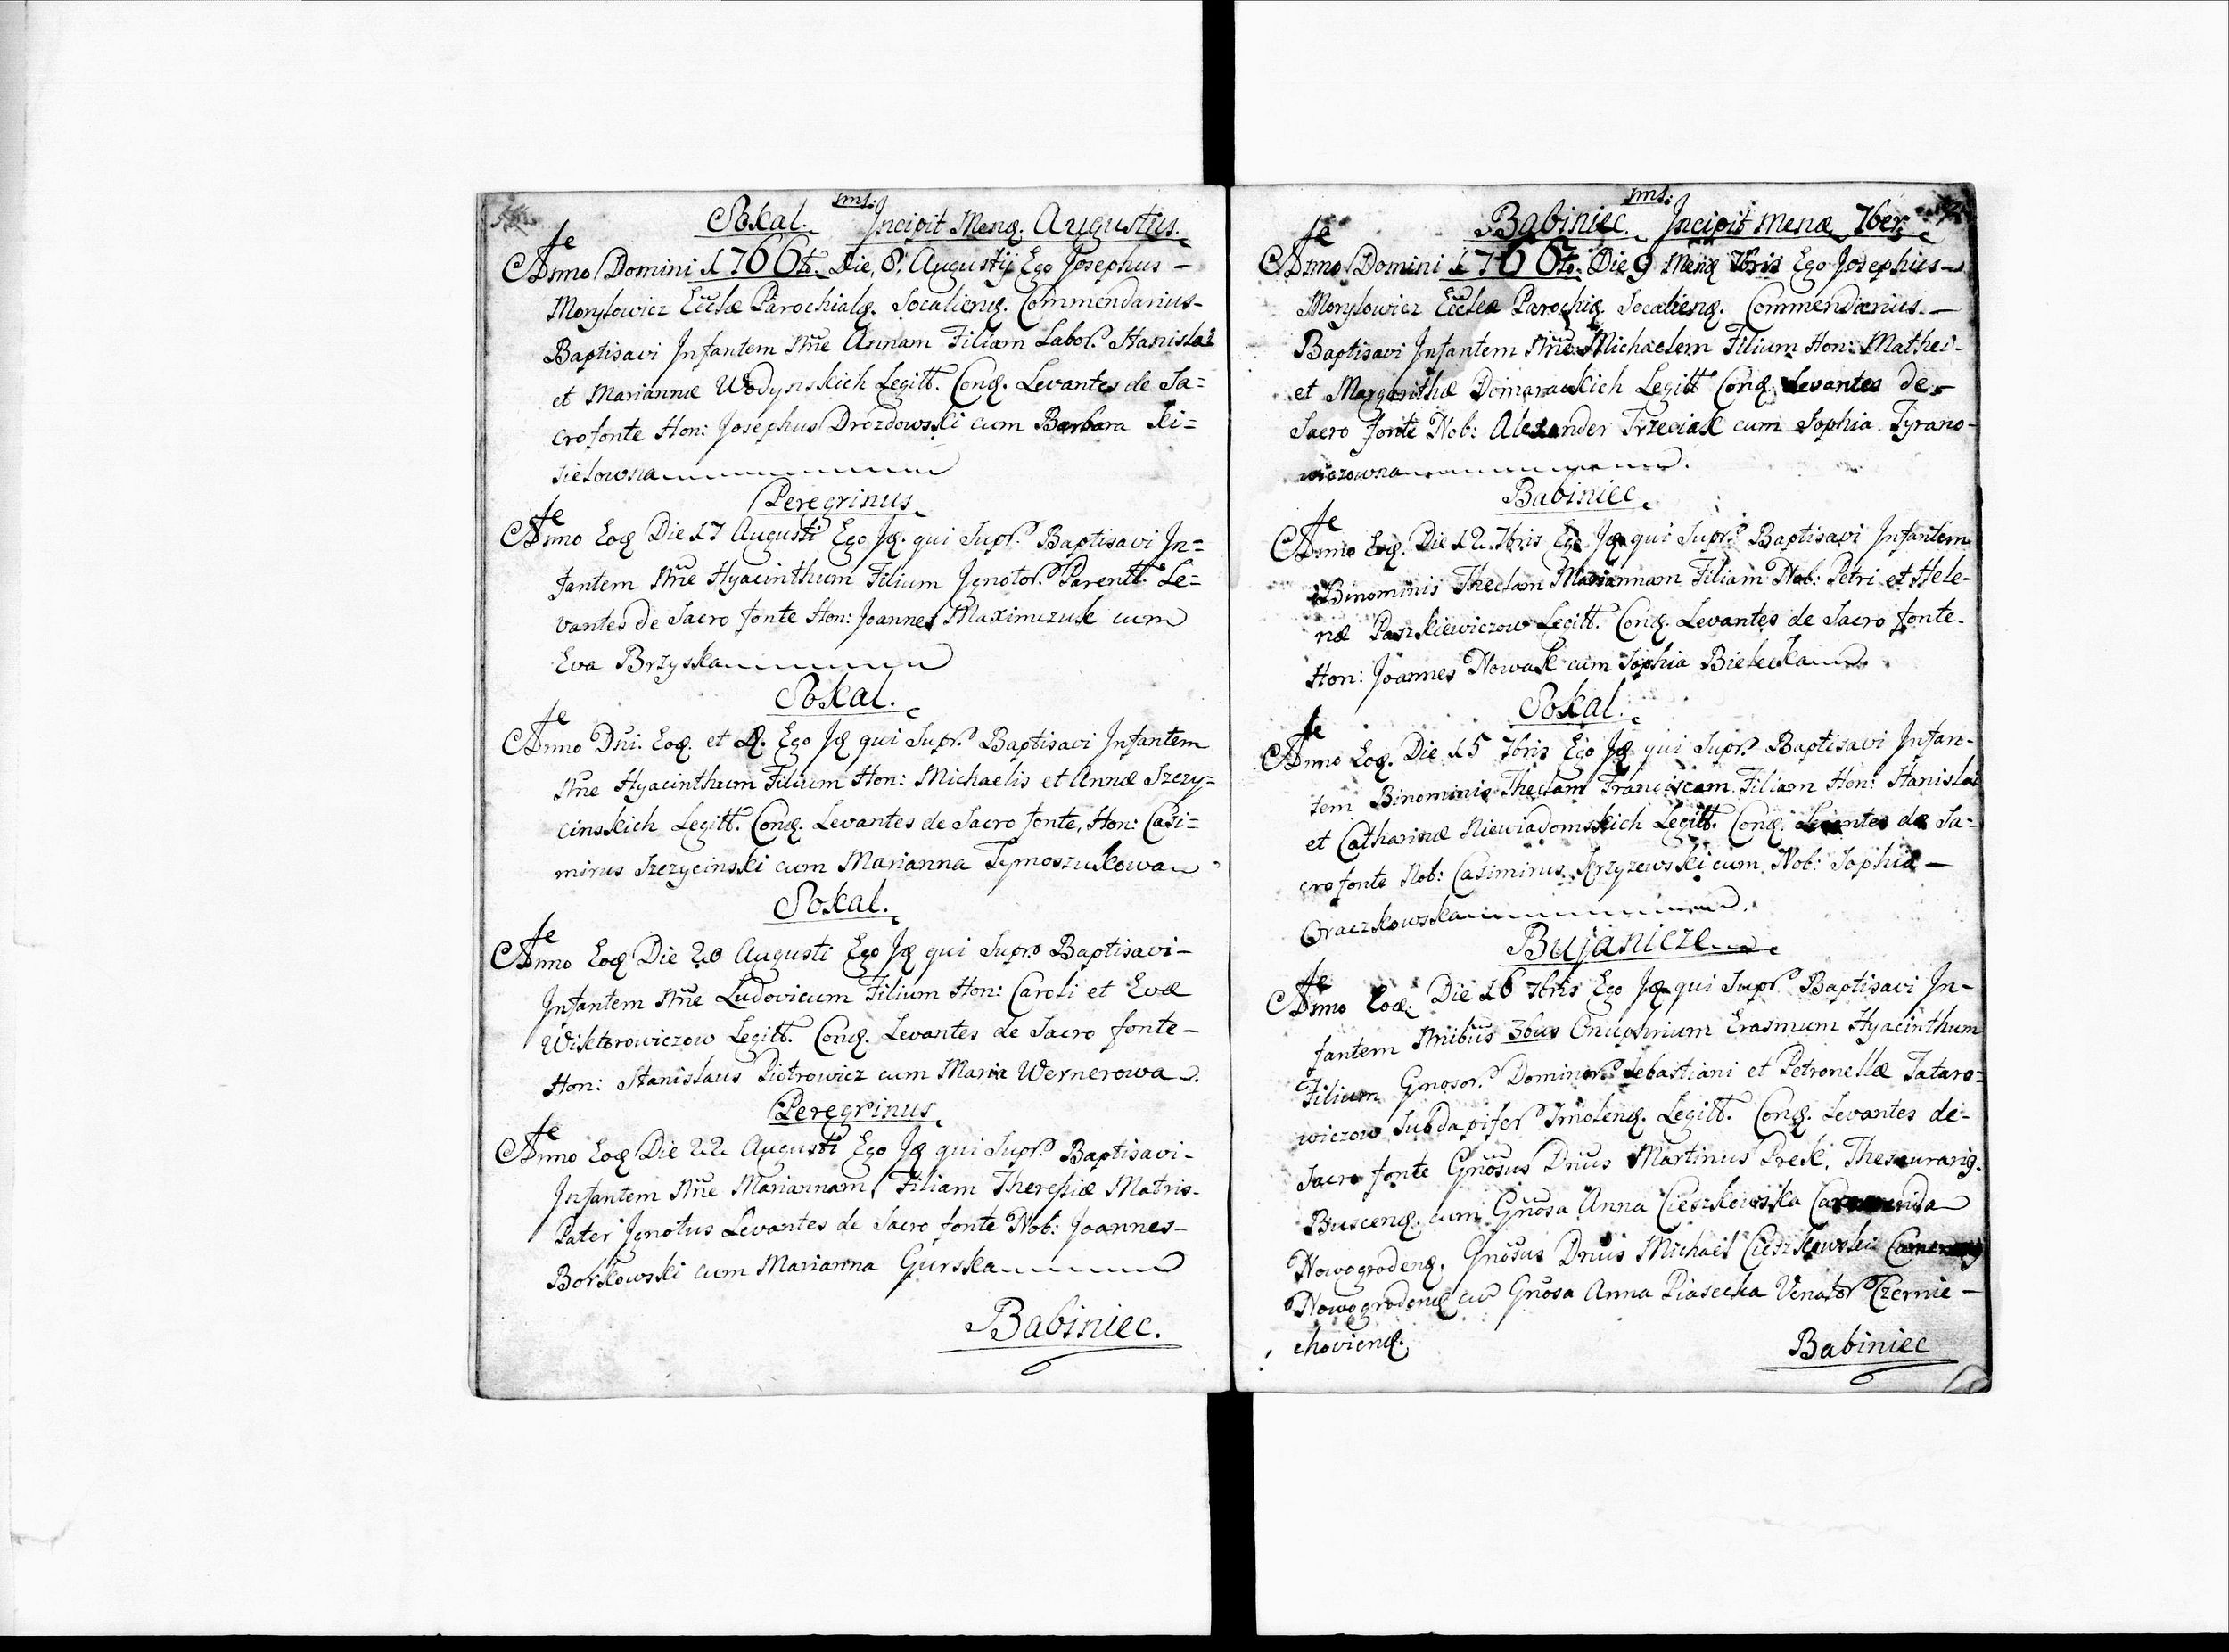 Sokal. Incipit Mensq. Augustus.
Anno Domini 1766to. Die 8. Augustij Ego Josephus –
Morylowicz Ecclæ Parochialq. Socalienq. Commendarius –
Baptisavi Infantem Nne Annam Filiam Labor. Stanislai
et Mariannæ Wodynskich Legitt. Conq. Levantes de Sa=
cro fonte Hon: Josephus Drozdowski cum Barbara Ki=
sielowna
Peregrinus
Anno Eoq Die 17 Augusti Ego Jq. qui Supr. Baptisavi In=
fantem Nne Hyacinthum Filium Ignotor. Parentt. Le=
vantes de Sacro fonte Hon: Joannes Maximczuk cum
Eva Brzyska
Sokal.
Anno Dni. Eoq. et D. Ego Jq qui Supr. Baptisavi Infantem
Nne Hyacinthum Filium Hon: Michaelis et Annæ Szczy=
cinskich Legitt. Conq. Levantes de Sacro fonte, Hon: Casi=
mirus Szczycinski cum Marianna Tymoszukowa
Sokal.
Anno Eoq Die 20 Augusti Ego Jq qui Supr. Baptisavi –
Infantem Nne Ludovicum Filium Hon: Caroli et Evæ
Wiktorowiczow Legitt. Conq. Levantes de Sacro fonte –
Hon: Stanislaus Piotrowicz cum Maria Wernerowa
Peregrinus
Anno Eoq Die 22 Augusti Ego Jq qui Supr. Baptisavi –
Infantem Nne Mariannam Filiam Theresiæ Matris –
Pater Ignotus Levantes de Sacro fonte Nob: Joannes –
Borkowski cum Marianna Gurska
Babiniec.
Babiniec. Incipit Mensq 7ber
Anno Domini 1766to. Die 9 Mensq 7bris Ego Josephus –
Morylowicz Ecclæ Parochiq. Socalienq. Commendarius. –
Baptisavi Infantem Nne Michaelem Filium Hon: Mathei –
et Margarithæ Domarackich Legitt Conq. Levantes de –
Sacro fonte Nob: Alexander Trzeciak cum Sophia Tyrano-
wiczowna
Babiniec
Anno Eoq. Die 12. 7bris Ego Jq qui Supr. Baptisavi Infantem
Binominis Theclam Mariannam Filiam Nob: Petri et Hele-
næ Paszkiewiczow Legitt. Conq. Levantes de Sacro fonte –
Hon: Joannes Nowak cum Sophia Bielecka
Sokal.
Anno Eoq. Die 15 7bris Ego Jq qui Supr. Baptisavi Infan-
tem Binominis Theclam Franciscam Filiam Hon: Stanislai
et Catharinæ Niewiadomskich Legitt. Conq. Levantes de Sa=
cro fonte Nob: Casimirus Krzyzewski cum Nob: Sophia –
Oraczkowska
Bujanicze
Anno Eoq. Die 16 7bris Ego Jq qui Supr. Baptisavi In-
fantem Nnibus 3bus Onuphrium Erasmum Hyacinthum
Filium Gnosor. Dominor. Sebastiani et Petronellæ Tataro=
wiczow Subdapifer Smolenq. Legitt. Conq. Levantes de –
Sacro fonte Gnosus Dnus Martinus Prek, Thesaurariq.
Buscenq. cum Gnosa Anna Cieszkowska
Nowogrodenq. Gnosus Dnus Michael Cieszkowski
Nowogrodenq cu Gnosa Anna Piasecka Venator Czernie –
chovienq.
Babiniec